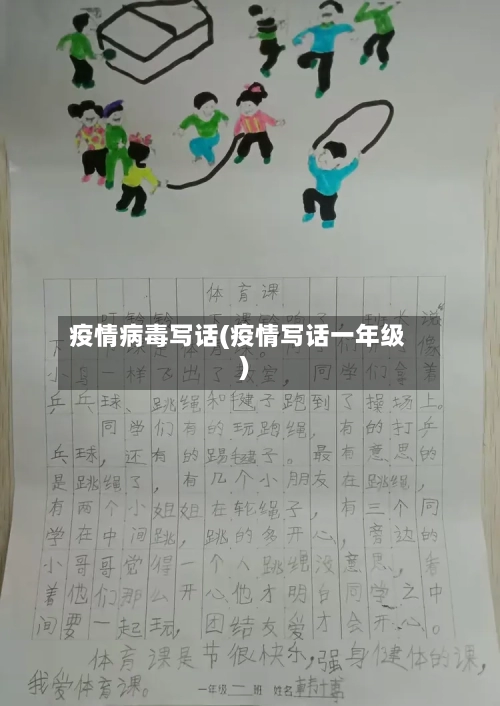 体育课
疫情病毒写话(疫情写话一年级
)
乒乓球、跳绳和毽子跑到了操场上。
同学们有的玩跑绳，有的打乒
乓球，还有的踢毽子。最有意思的
是跳绳了，有几个小朋友在跳绳，
有两个小姐姐在轮绳子，有三个同
学在中间跳，跳的多开心，旁边的
小哥哥觉得一个人跳绳没意思，看
着他们那么开心他才明白同学之中
间要一起玩，团结友爱才会开心。
体育课是节很快乐，强身健体的课，
我爱体育课。
一年级一班 姓名